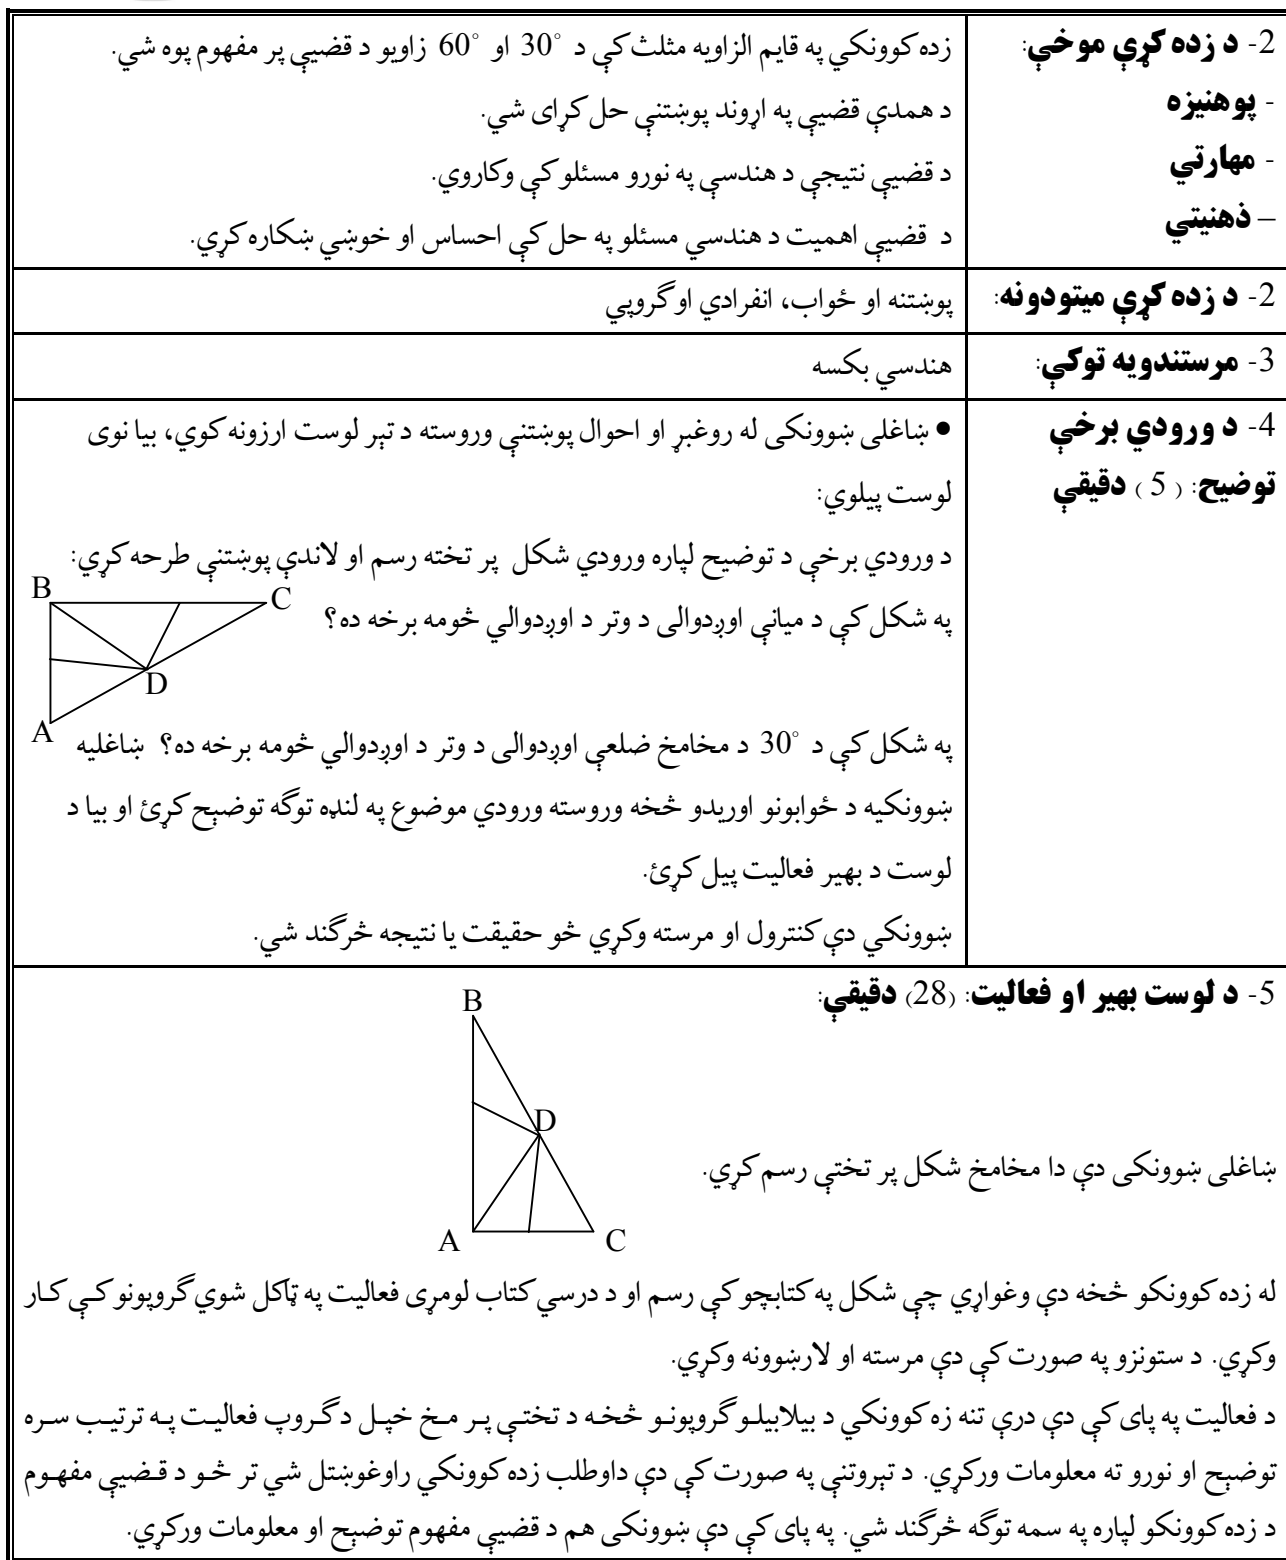 2- د زده کړې موخې:
- پوهنيزه
- مهارتي
– ذهنيتي
زده کوونکي په قايم الزاويه مثلث کې د 30° او 60° زاويو د قضيې پر مفهوم پوه شي.
د همدې قضيې په اړوند پوښتنې حل کړای شي.
د قضيې نتيجې د هندسې په نورو مسئلو کې وکاروي.
د قضيې اهميت د هندسي مسئلو په حل کې احساس او خوښي ښکاره کړي.
2- د زده کړې ميتودونه:
پوښتنه او ځواب، انفرادي او گروپي
3- مرستندويه توکي:
هندسي بکسه
4- د ورودي برخې
توضيح: ( 5 ) دقيقې
● ښاغلی ښوونکی له روغبړ او احوال پوښتنې وروسته د تېر لوست ارزونه کوي، بيا نوی
لوست پيلوي:
د ورودي برخې د توضيح لپاره ورودي شکل پر تخته رسم او لاندې پوښتنې طرحه کړي:
په شکل کې د ميانې اوږدوالی د وتر د اوږدوالي څومه برخه ده؟
B
C
D
A
په شکل کې د 30° د مخامخ ضلعې اوږدوالی د وتر د اوږدوالي څومه برخه ده؟ ښاغليه
ښوونکيه د ځوابونو اوريدو څخه وروسته ورودي موضوع په لنډه توگه توضېح کړئ او بيا د
لوست د بهير فعاليت پيل کړئ.
ښوونکي دې کنترول او مرسته وکړي څو حقيقت يا نتيجه څرگند شي.
5- د لوست بهير او فعاليت: (28) دقيقې:
B
D
A
C
ښاغلی ښوونکی دې دا مخامخ شکل پر تختې رسم کړي.
له زده کوونکو څخه دې وغواړي چې شکل په کتابچو کې رسم او د درسي کتاب لومړی فعاليت په ټاکل شوي گروپونو کـې کـار
وکړي. د ستونزو په صورت کې دې مرسته او لارښوونه وکړي.
د فعاليت په پای کې دې درې تنه زه کوونکي د بيلابيلـو گروپونـو څخـه د تختـې پـر مـخ خپـل د گـروپ فعاليـت پـه ترتيـب سـره
توضېح او نورو ته معلومات ورکړي. د تېروتنې په صورت کې دې داوطلب زده کوونکي راوغوښتل شي تر څـو د قـضيې مفهـوم
د زده کوونکو لپاره په سمه توگه څرگند شي. په پای کې دې ښوونکی هم د قضيې مفهوم توضېح او معلومات ورکړي.